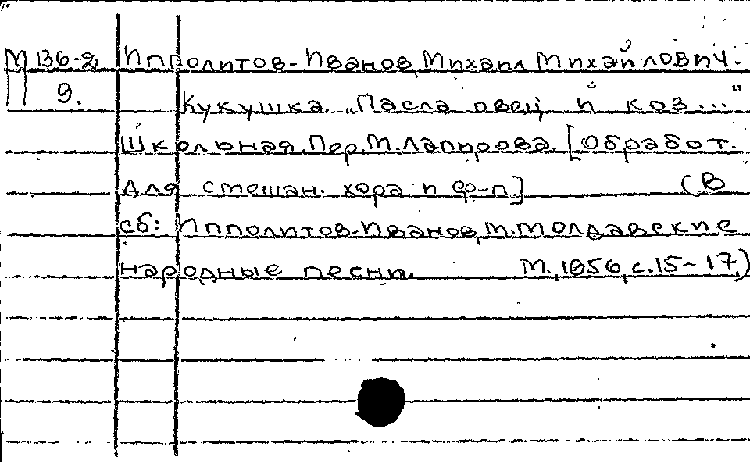 М 136-2 Ипполитов-Иванов, Михаил Михайлович.
9. Кукушка. "Пасла овец и коз..."
Школьная. Пер. М. Лапирова. [Обработ.
для смешан. хора и ф-п] (В
сб: Ипполитов-Иванов, М. Молдавские
народные песни. М., 1956, с. 15-17.)